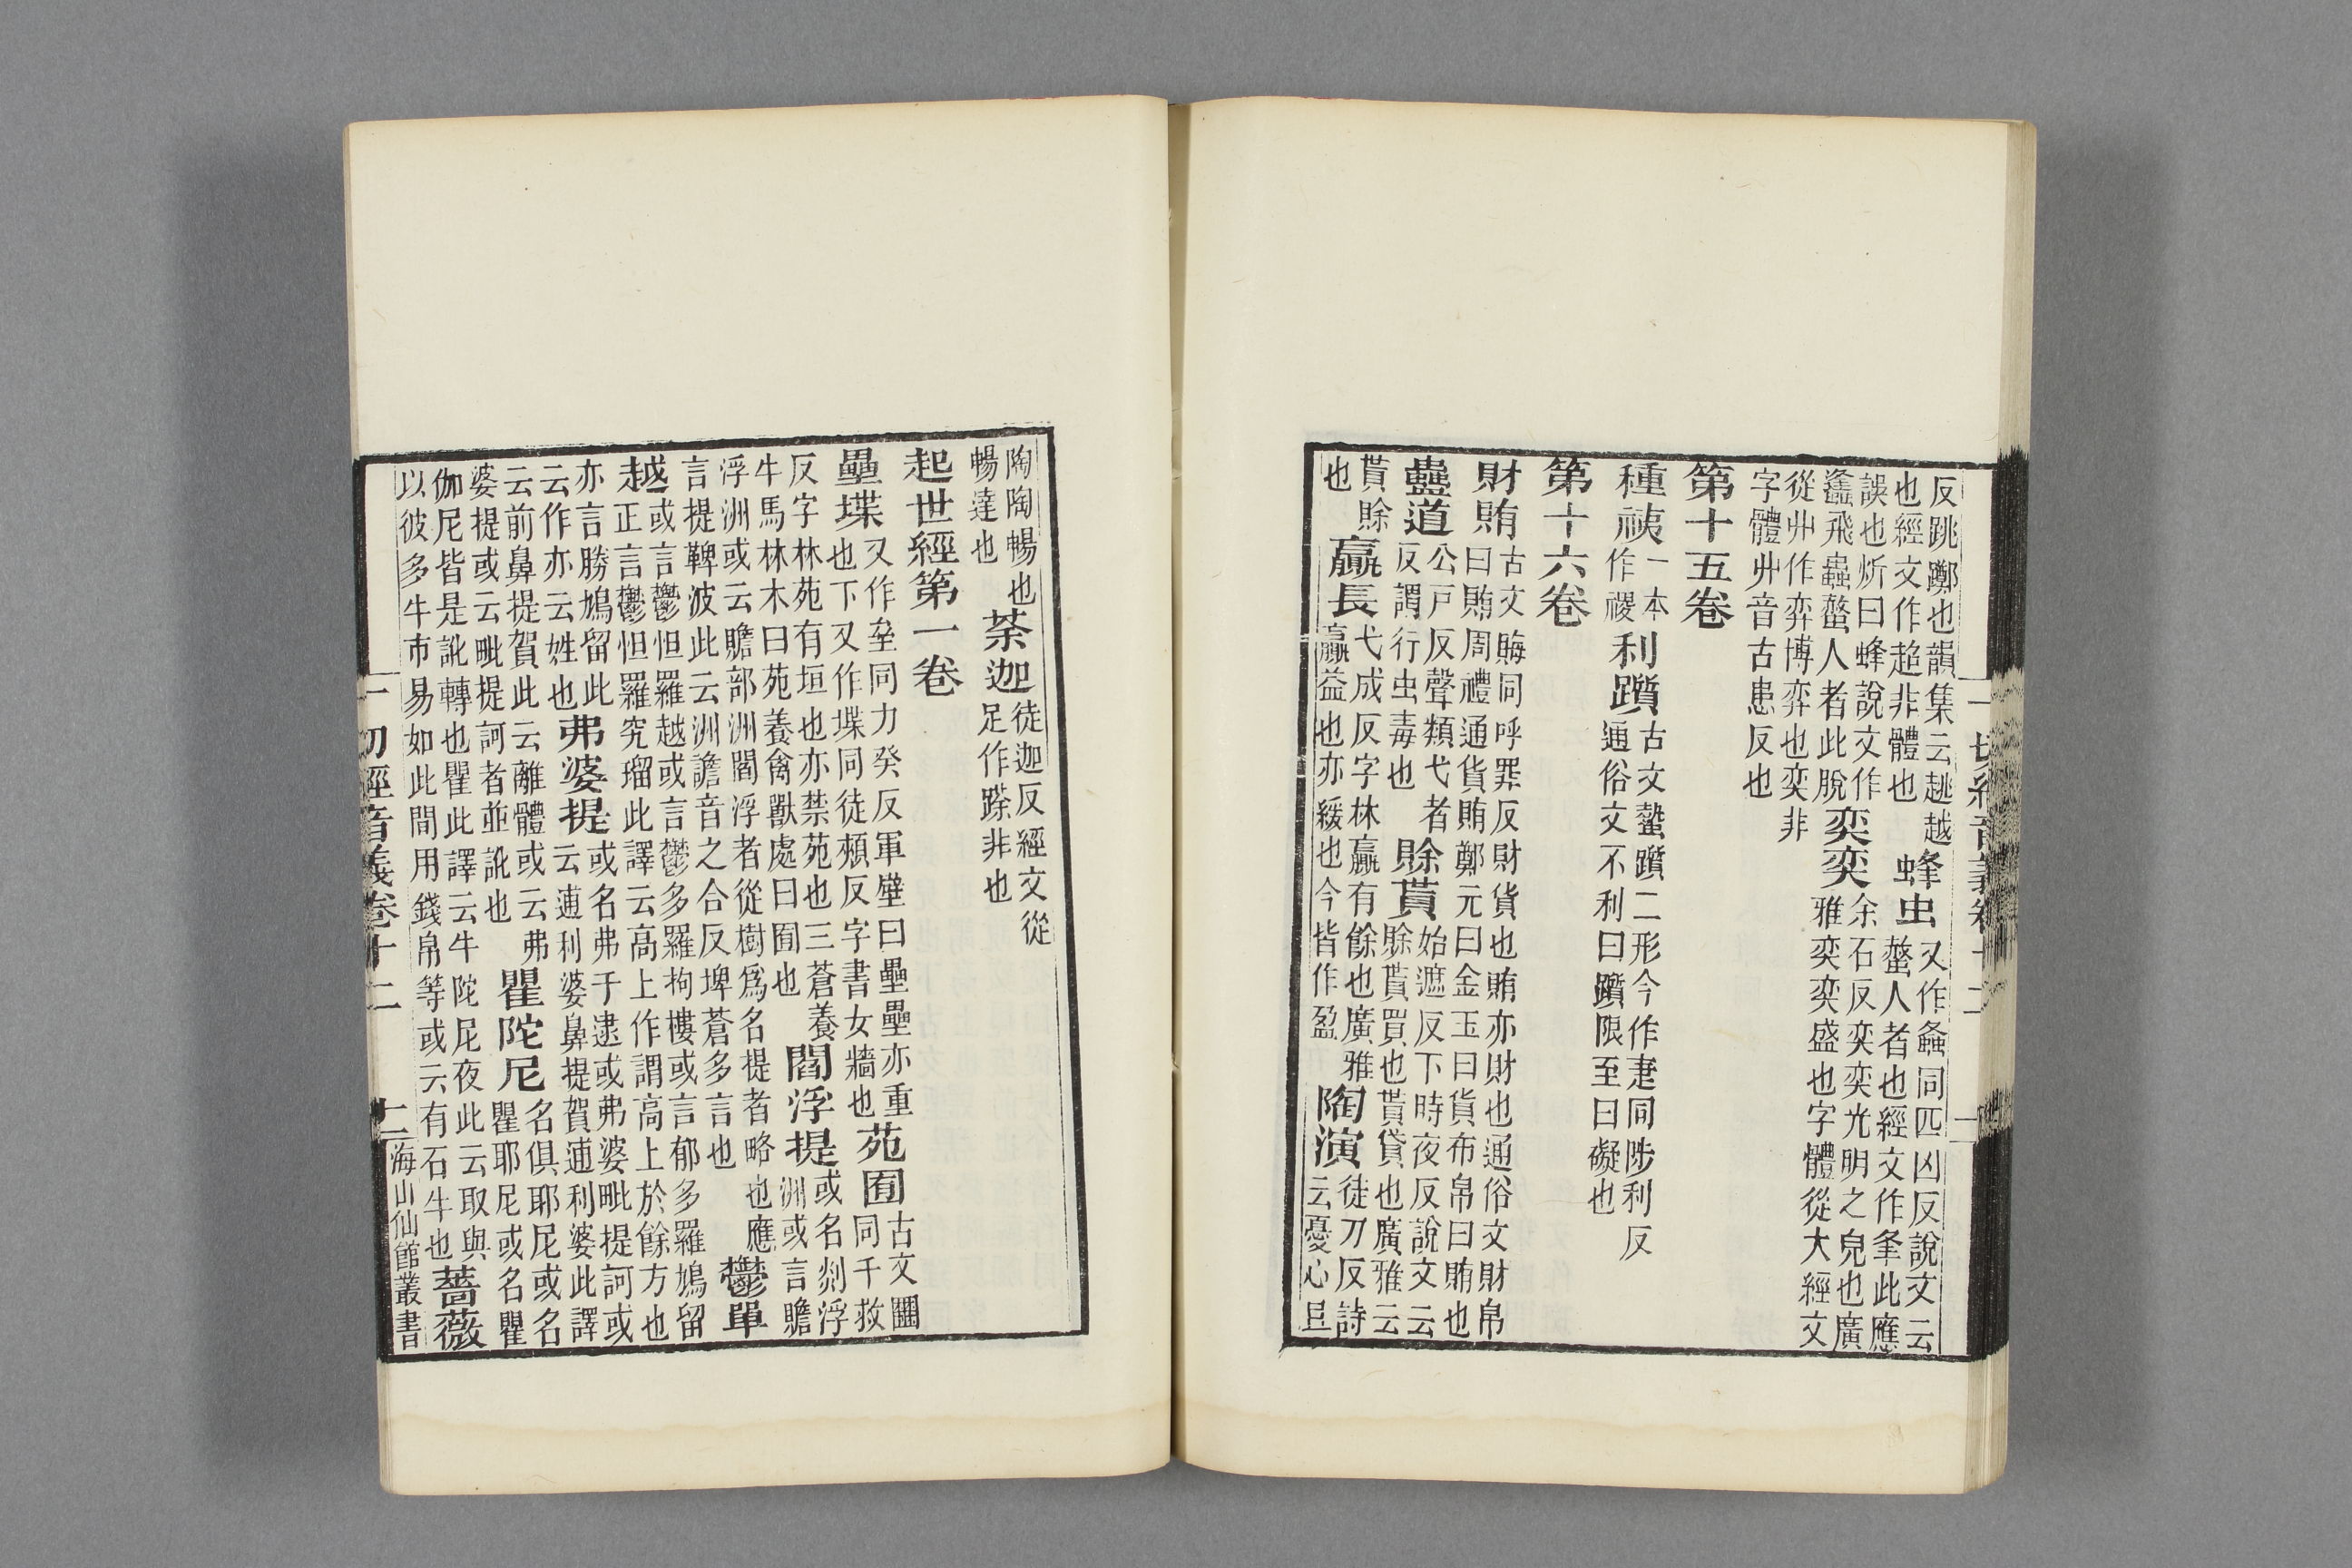 反跳躑也韻集云趒越
也經文作超非體也
蜂虫
又作螽同匹凶反說文云
螫人者也經文作夆此應
誤也炘曰蜂說文作
蠭飛蟲螫人者此脫
奕奕
余石反奕奕光明之皃也廣
雅奕奕盛也字體從大經文
從廾作弈博弈也奕非
字體廾音古恚反也
第十五卷
種䄺
一本
作稷
利躓
古文疐躓二形今作疌同陟利反
通俗文不利曰躓限至曰礙也
第十六卷
財賄
古文䀲同呼罪反財貨也賄亦財也通俗文財帛
曰賄周禮通貨賄鄭元曰金玉曰貨布帛曰賄也
蠱道
公戸反聲類弋者
反謂行虫毒也
賒貰
始遮反下時夜反說文云
賒貰買也貰貸也廣雅云
貰賒
也
贏長
弋成反字林贏有餘也廣雅
贏益也亦緩也今皆作盈
陶演
徒刀反詩
云憂心且
一切經音義卷十二
陶陶暢也
暢達也
荼迦
徒迦反經文從
足作蹂非也
起世經第一卷
壘堞
又作垒同力癸反軍壁曰壘壘亦重
也下又作堞同徒頰反字書女牆也
苑囿
古文𡈹
同千救
反字林苑有垣也亦禁苑也三蒼養
牛馬林木曰苑養禽獸處曰囿也
閻浮提
或名剡浮
洲或言贍
浮洲或云贍部洲閻浮者從樹爲名提者略也應
言提鞞波此云洲譫音之合反埤蒼多言也
鬱單
越
或言鬱怛羅越或言鬱多羅拘樓或言郁多羅鳩留
正言鬱怛羅究瑠此譯云高上作謂高上於餘方也
亦言勝鳩留此
云作亦云姓也
弗婆提
或名弗于逮或弗婆毗提訶或
云逋利婆鼻提賀逋利婆此譯
云前鼻提賀此云離體或云弗
婆提或云毗提訶者並訛也
瞿陀尼
名俱耶尼或名
瞿耶尼或名瞿
伽尼皆是訛轉也瞿此譯云牛陀尼夜此云取與
以彼多牛市易如此間用錢帛等或云有石牛也
薔薇
一切經音義卷十二
二
海山仙館叢書